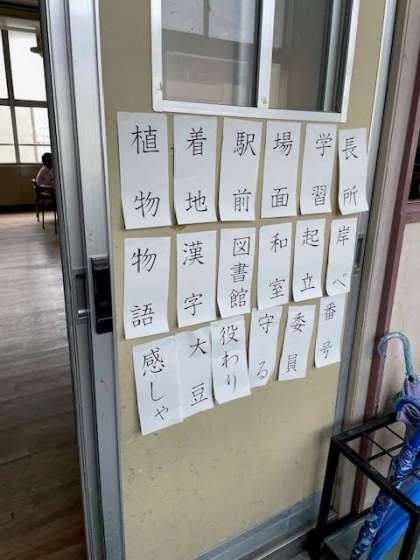 長所
学習
場面
駅前
着地
植物
岸べ
起立
和室
図書館
漢字
物語
番号
委員
守る
役わり
大豆
感しゃ